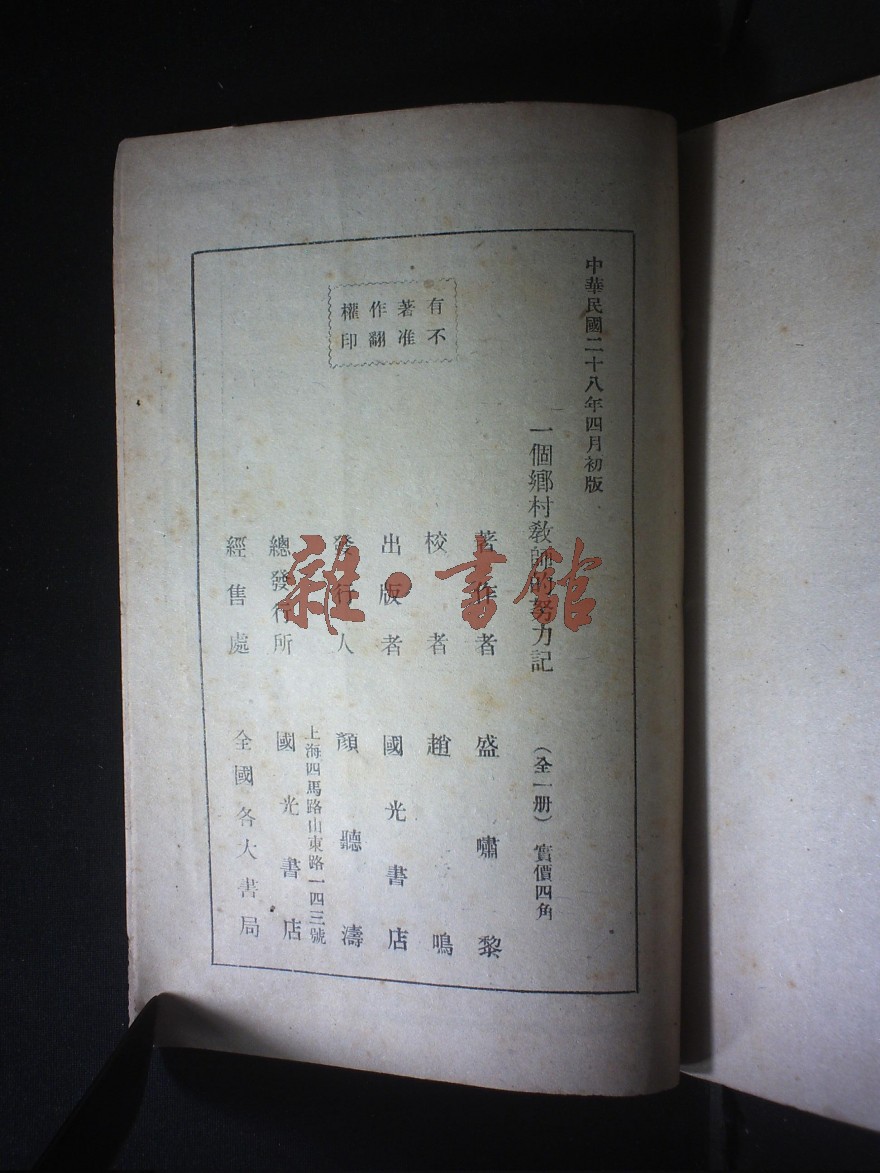 中華民國二十八年四月初版
一個鄉村教師的努力記
（全一册）實價四角
著作者 盛嘯黎
校者 趙鳴
出版者 國光書店
發行人 顏聽濤
上海四馬路山東路一四三號
總發行所 國光書店
經售處 全國各大書局
有著作權
不准翻印
雜·書館